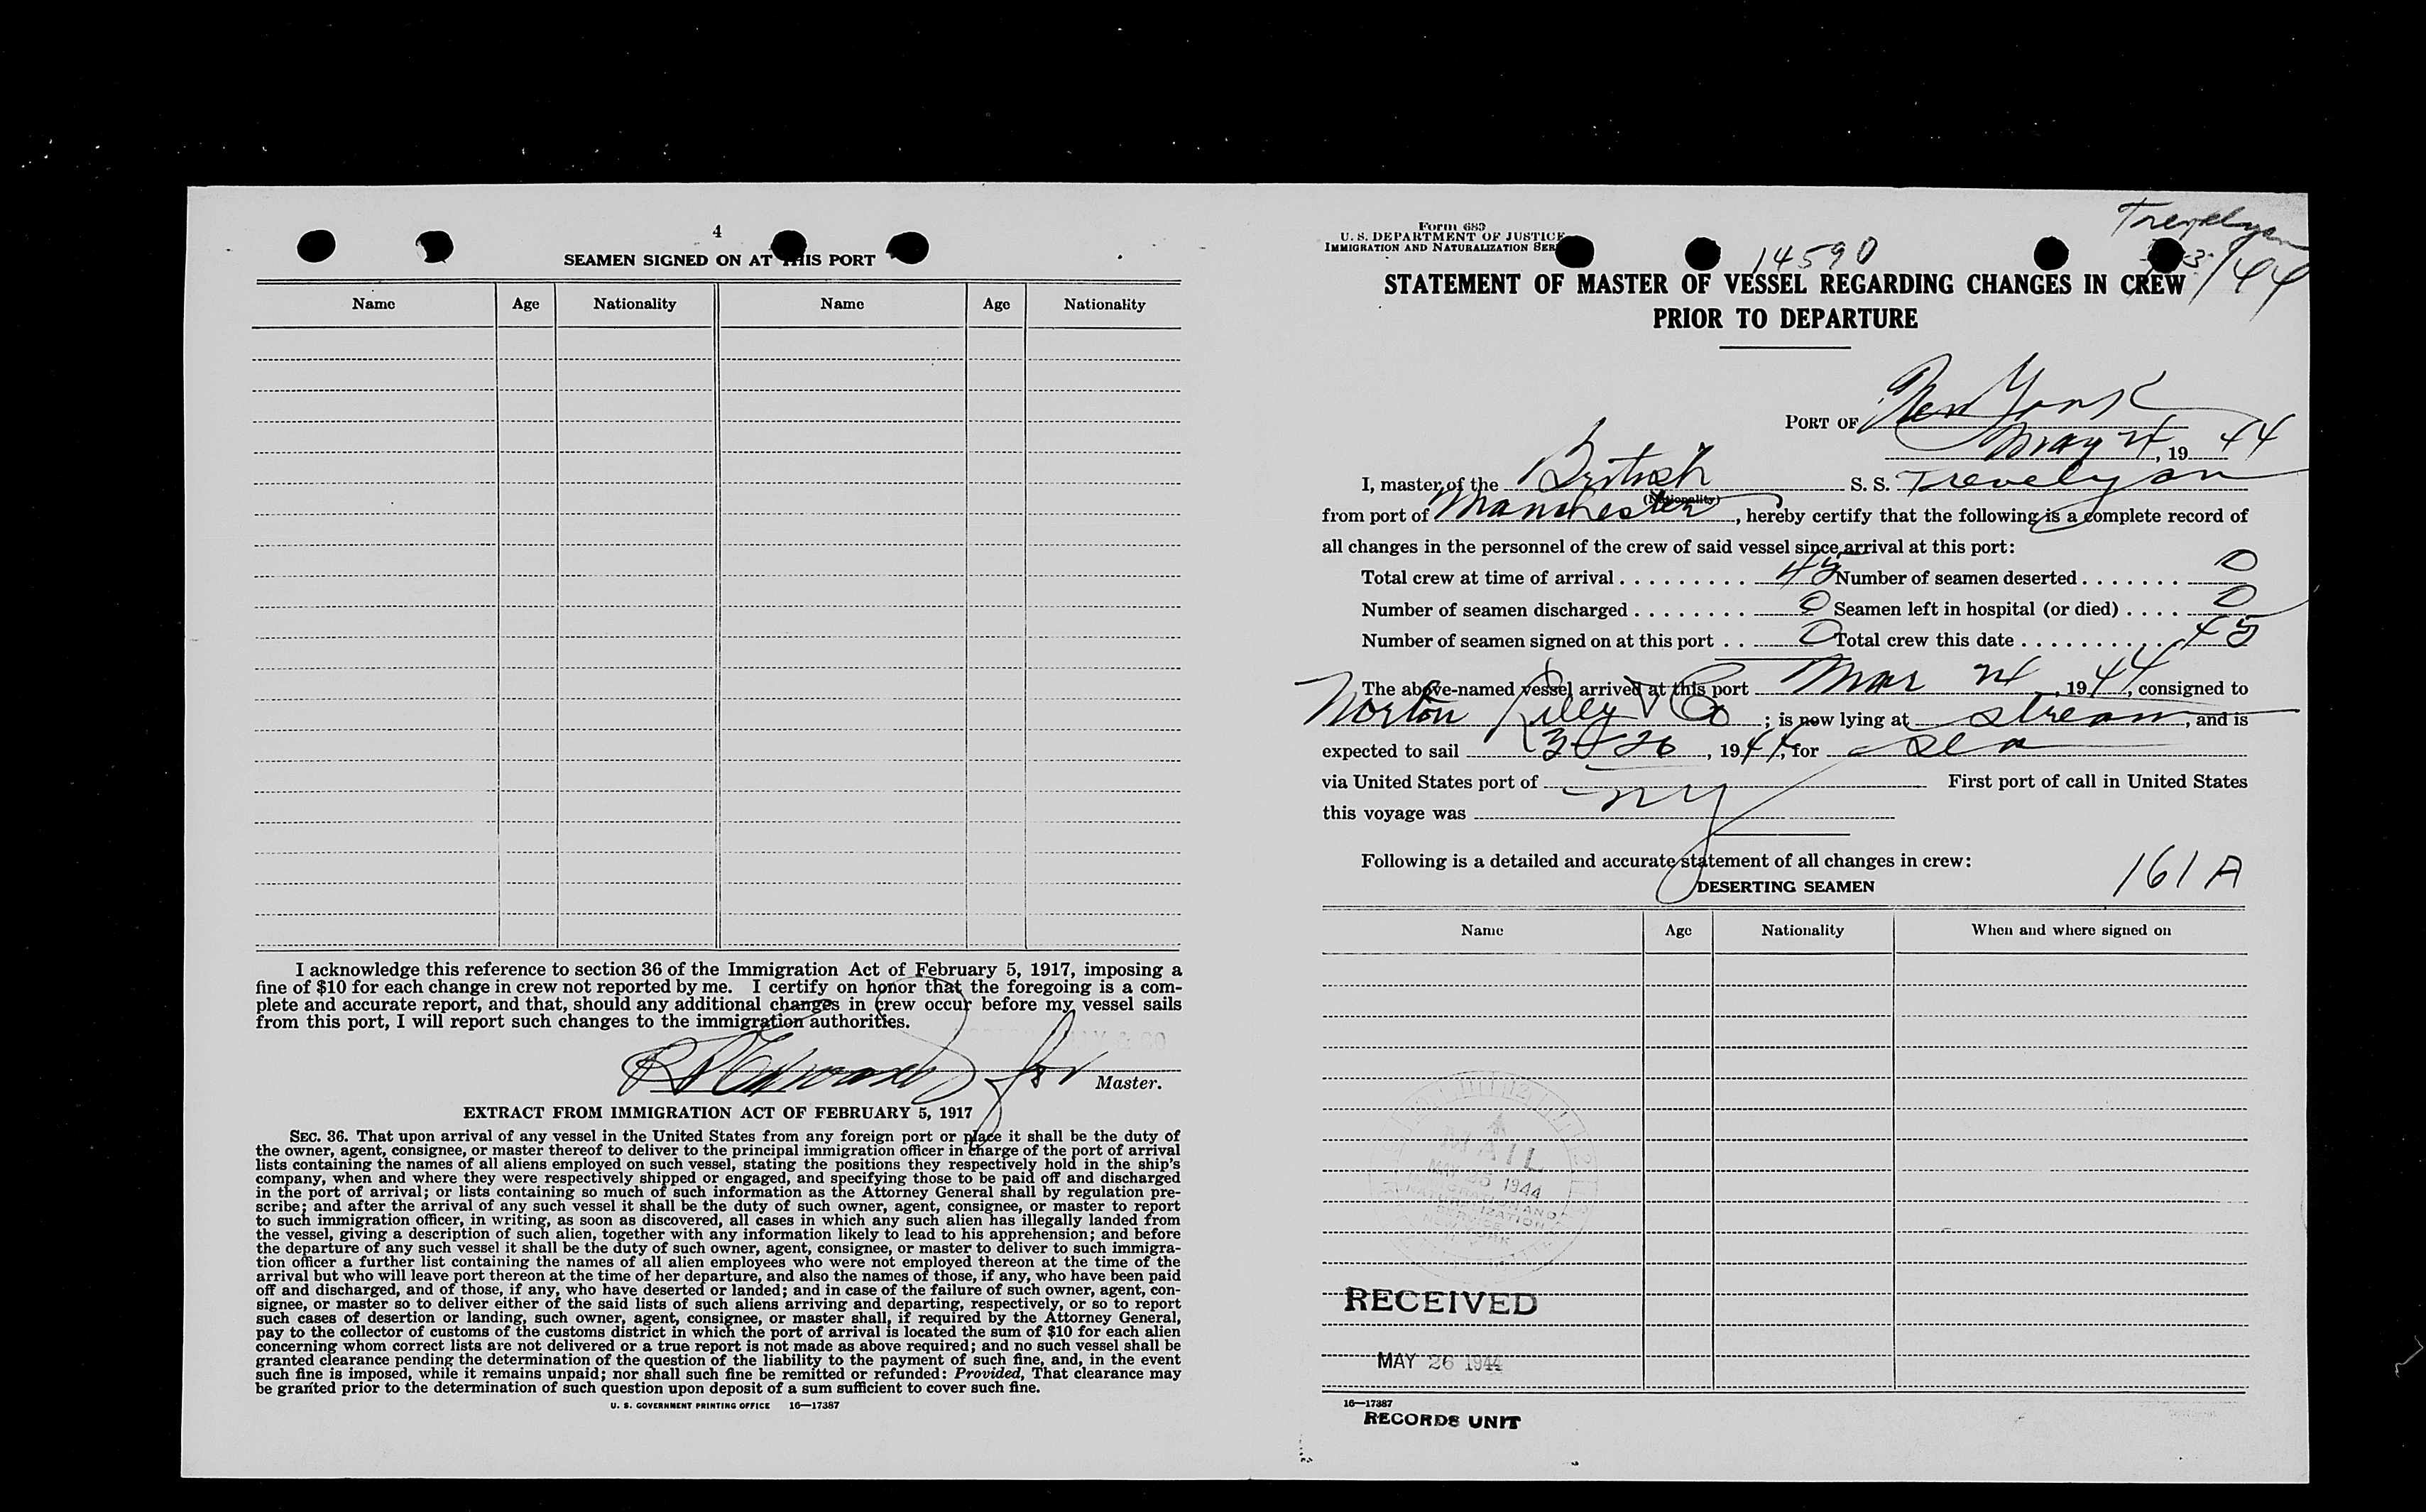 4
SEAMEN SIGNED ON AT THIS PORT
Name Age Nationality Name Age Nationality
I acknowledge this reference to section 36 of the Immigration Act of February 5, 1917, imposing a
fine of $10 for each change in crew not reported by me. I certify on honor that the foregoing is a com-
plete and accurate report, and that, should any additional changes in crew occur before my vessel sails
from this port, I will report such changes to the immigration authorities.
for Master.
EXTRACT FROM IMMIGRATION ACT OF FEBRUARY 5, 1917
SEC. 36. That upon arrival of any vessel in the United States from any foreign port or place it shall be the duty of
the owner, agent, consignee, or master thereof to deliver to the principal immigration officer in charge of the port of arrival
lists containing the names of all aliens employed on such vessel, stating the positions they respectively hold in the ship's
company, when and where they were respectively shipped or engaged, and specifying those to be paid off and discharged
in the port of arrival; or lists containing so much of such information as the Attorney General shall by regulation pre-
scribe; and after the arrival of any such vessel it shall be the duty of such owner, agent, consignee, or master to report
to such immigration officer, in writing, as soon as discovered, all cases in which any such alien has illegally landed from
the vessel, giving a description of such alien, together with any information likely to lead to his apprehension; and before
the departure of any such vessel it shall be the duty of such owner, agent, consignee, or master to deliver to such immigra-
tion officer a further list containing the names of all alien employees who were not employed thereon at the time of the
arrival but who will leave port thereon at the time of her departure, and also the names of those, if any, who have been paid
off and discharged, and of those, if any, who have deserted or landed; and in case of the failure of such owner, agent, con-
signee, or master so to deliver either of the said lists of such aliens arriving and departing, respectively, or so to report
such cases of desertion or landing, such owner, agent, consignee, or master shall, if required by the Attorney General,
pay to the collector of customs of the customs district in which the port of arrival is located the sum of $10 for each alien
concerning whom correct lists are not delivered or a true report is not made as above required; and no such vessel shall be
granted clearance pending the determination of the question of the liability to the payment of such fine, and, in the event
such fine is imposed, while it remains unpaid; nor shall such fine be remitted or refunded: Provided, That clearance may
be granted prior to the determination of such question upon deposit of a sum sufficient to cover such fine.
U. S. GOVERNMENT PRINTING OFFICE 16—17387
Form 689
U. S. DEPARTMENT OF JUSTICE
IMMIGRATION AND NATURALIZATION SER
Trevelyan
14590
/44
STATEMENT OF MASTER OF VESSEL REGARDING CHANGES IN CREW
PRIOR TO DEPARTURE
PORT OF New York
May 24, 1944
I, master of the British S. S. Trevelyan
(Nationality)
from port of Manchester, hereby certify that the following is a complete record of
all changes in the personnel of the crew of said vessel since arrival at this port:
Total crew at time of arrival . . . . . . . . . 45 Number of seamen deserted . . . . . . . 0
Number of seamen discharged . . . . . . . . 0 Seamen left in hospital (or died) . . . . 0
Number of seamen signed on at this port . . 0 Total crew this date . . . . . . . . . . . 45
The above-named vessel arrived at this port May 24, 1944, consigned to
Norton Lilly & Co; is now lying at stream, and is
expected to sail 26, 1944, for sea
via United States port of First port of call in United States
this voyage was NY
Following is a detailed and accurate statement of all changes in crew:
161 A
DESERTING SEAMEN
Name Age Nationality When and where signed on
MAIL
MAY 25 1944
IMMIGRATION AND
NATURALIZATION
SERVICE
NEW YORK
RECEIVED
MAY 26 1944
16—17387
RECORDS UNIT